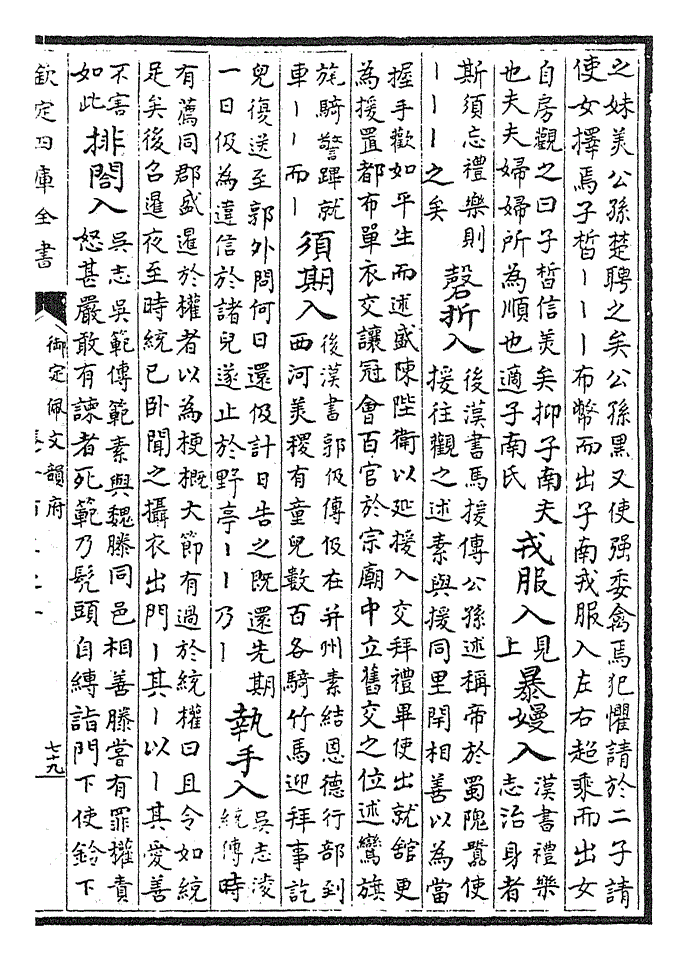 之妹美公孫楚聘之矣公孫黑又使强委禽焉犯懼請於二子請
使女擇焉子晳丨丨丨布幣而出子南戎服入左右超乘而出女
自房觀之曰子晳信美矣抑子南夫
也夫夫婦婦所為順也適子南氏
戎服入
見
上
暴嫚入
漢書禮樂
志治身者
斯須忘禮樂則
丨丨丨之矣
磬折入
後漢書馬援傳公孫述稱帝於蜀隗囂使
援往觀之述素與援同里閈相善以為當
握手歡如平生而述盛陳陛衛以延援入交拜禮畢使出就舘更
為援置都布單衣交讓冠會百官於宗廟中立舊交之位述鸞旗
旄騎警蹕就
車丨丨而丨
須期入
後漢書郭伋傳伋在并州素結恩德行部到
西河美稷有童兒數百各騎竹馬迎拜事訖
兒復送至郭外問何日還伋計日告之既還先期
一日伋為違信於諸兒遂止於野亭丨丨乃丨
執手入
吳志淩
統傳時
有薦同郡盛暹於權者以為梗概大節有過於統權曰且令如統
足矣後召暹夜至時統已卧聞之攝衣出門丨其丨以丨其愛善
不害
如此
排閤入
吳志吳範傳範素與魏滕同邑相善滕嘗有罪權責
怒甚嚴敢有諫者死範乃髠頭自縛詣門下使鈴下
欽定四庫全書
御定佩文韻府
七十九